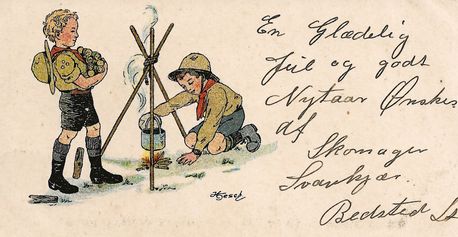 En Glædelig
Jul og godt
Nytaar Ønskes
af
Skomager
Svankjær.
Bedsted